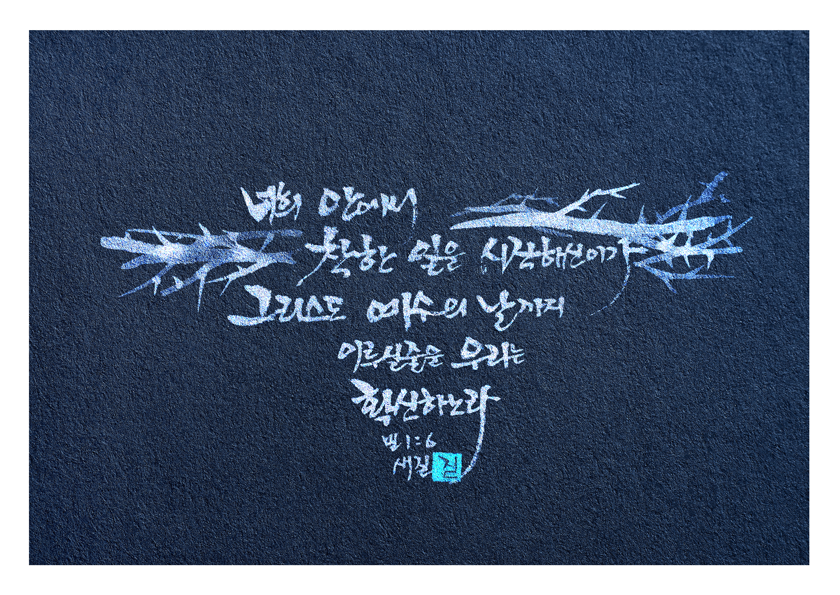 너희 안에서
착한 일을 시작하신이가
그리스도 예수의 날까지
이루실줄을 우리는
확신하노라
빌1:6
새길 길